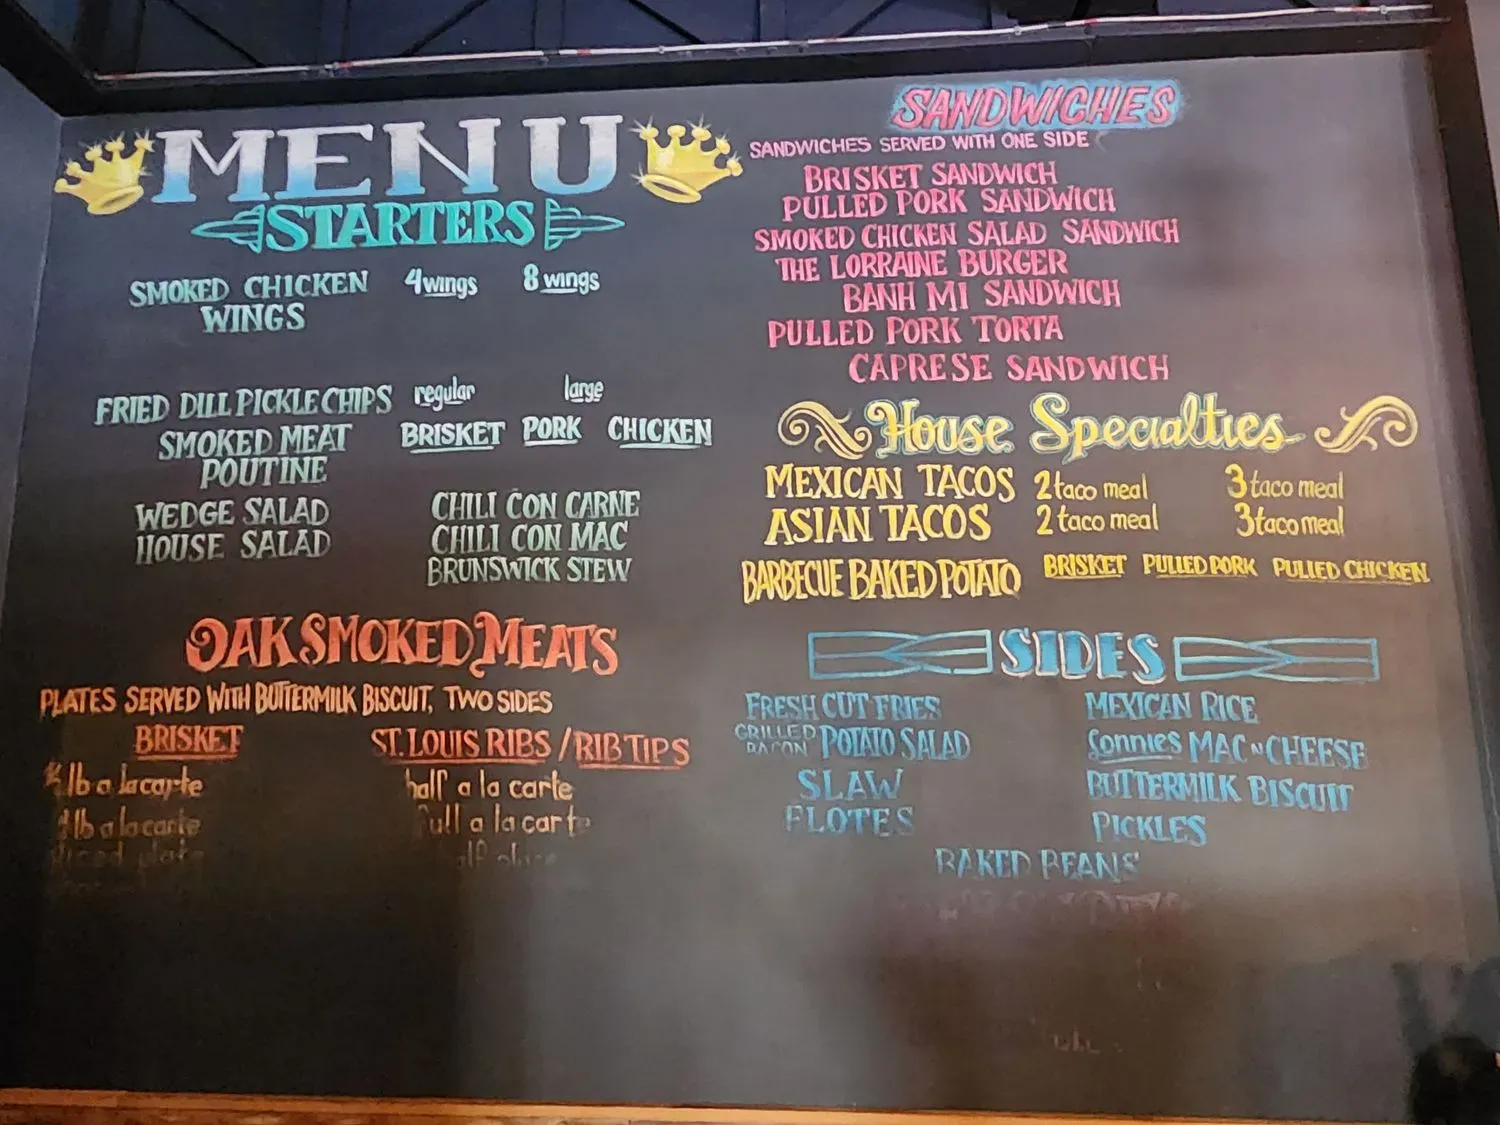 MENU
STARTERS
SMOKED CHICKEN WINGS 4 wings 8 wings
FRIED DILL PICKLE CHIPS regular large
SMOKED MEAT POUTINE BRISKET PORK CHICKEN
WEDGE SALAD
HOUSE SALAD
CHILI CON CARNE
CHILI CON MAC
BRUNSWICK STEW
OAK SMOKED MEATS
PLATES SERVED WITH BUTTERMILK BISCUIT, TWO SIDES
BRISKET
lb a la carte
lb a la carte
ST. LOUIS RIBS / RIB TIPS
half a la carte
full a la carte
SANDWICHES
SANDWICHES SERVED WITH ONE SIDE
BRISKET SANDWICH
PULLED PORK SANDWICH
SMOKED CHICKEN SALAD SANDWICH
THE LORRAINE BURGER
BANH MI SANDWICH
PULLED PORK TORTA
CAPRESE SANDWICH
House Specialties
MEXICAN TACOS 2 taco meal 3 taco meal
ASIAN TACOS 2 taco meal 3 taco meal
BARBECUE BAKED POTATO BRISKET PULLED PORK PULLED CHICKEN
SIDES
FRESH CUT FRIES
GRILLED BACON POTATO SALAD
SLAW
ELOTES
MEXICAN RICE
Lonnies MAC N CHEESE
BUTTERMILK BISCUIT
PICKLES
BAKED BEANS